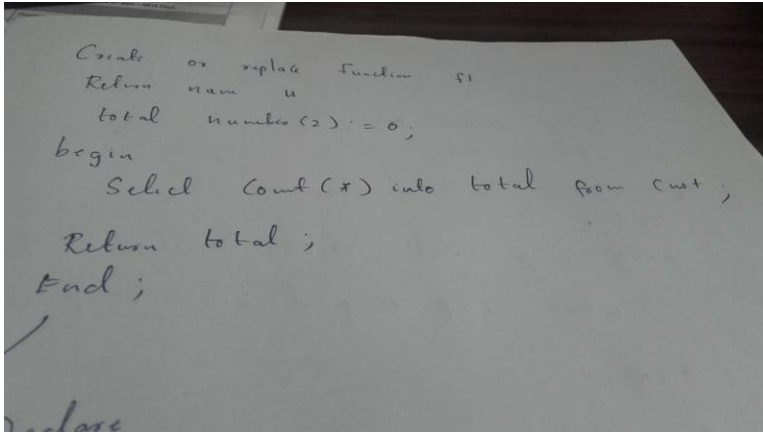 Create or replace function f1
Return num is
total number(2) := 0;
begin
Select count(*) into total from cust;
Return total;
End;
/
Declare